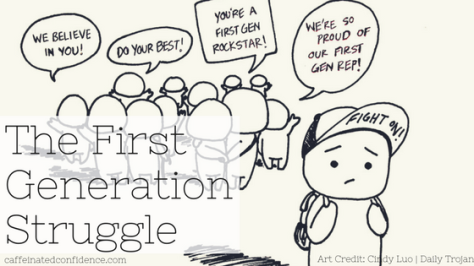 WE BELIEVE
IN YOU!
DO YOUR BEST!
YOU'RE A
FIRST GEN
ROCKSTAR!
WE'RE SO
PROUD OF
OUR FIRST
GEN REP!
FIGHT ON!
The First
Generation
Struggle
caffeinatedconfidence.com
Art Credit: Cindy Luo | Daily Trojan